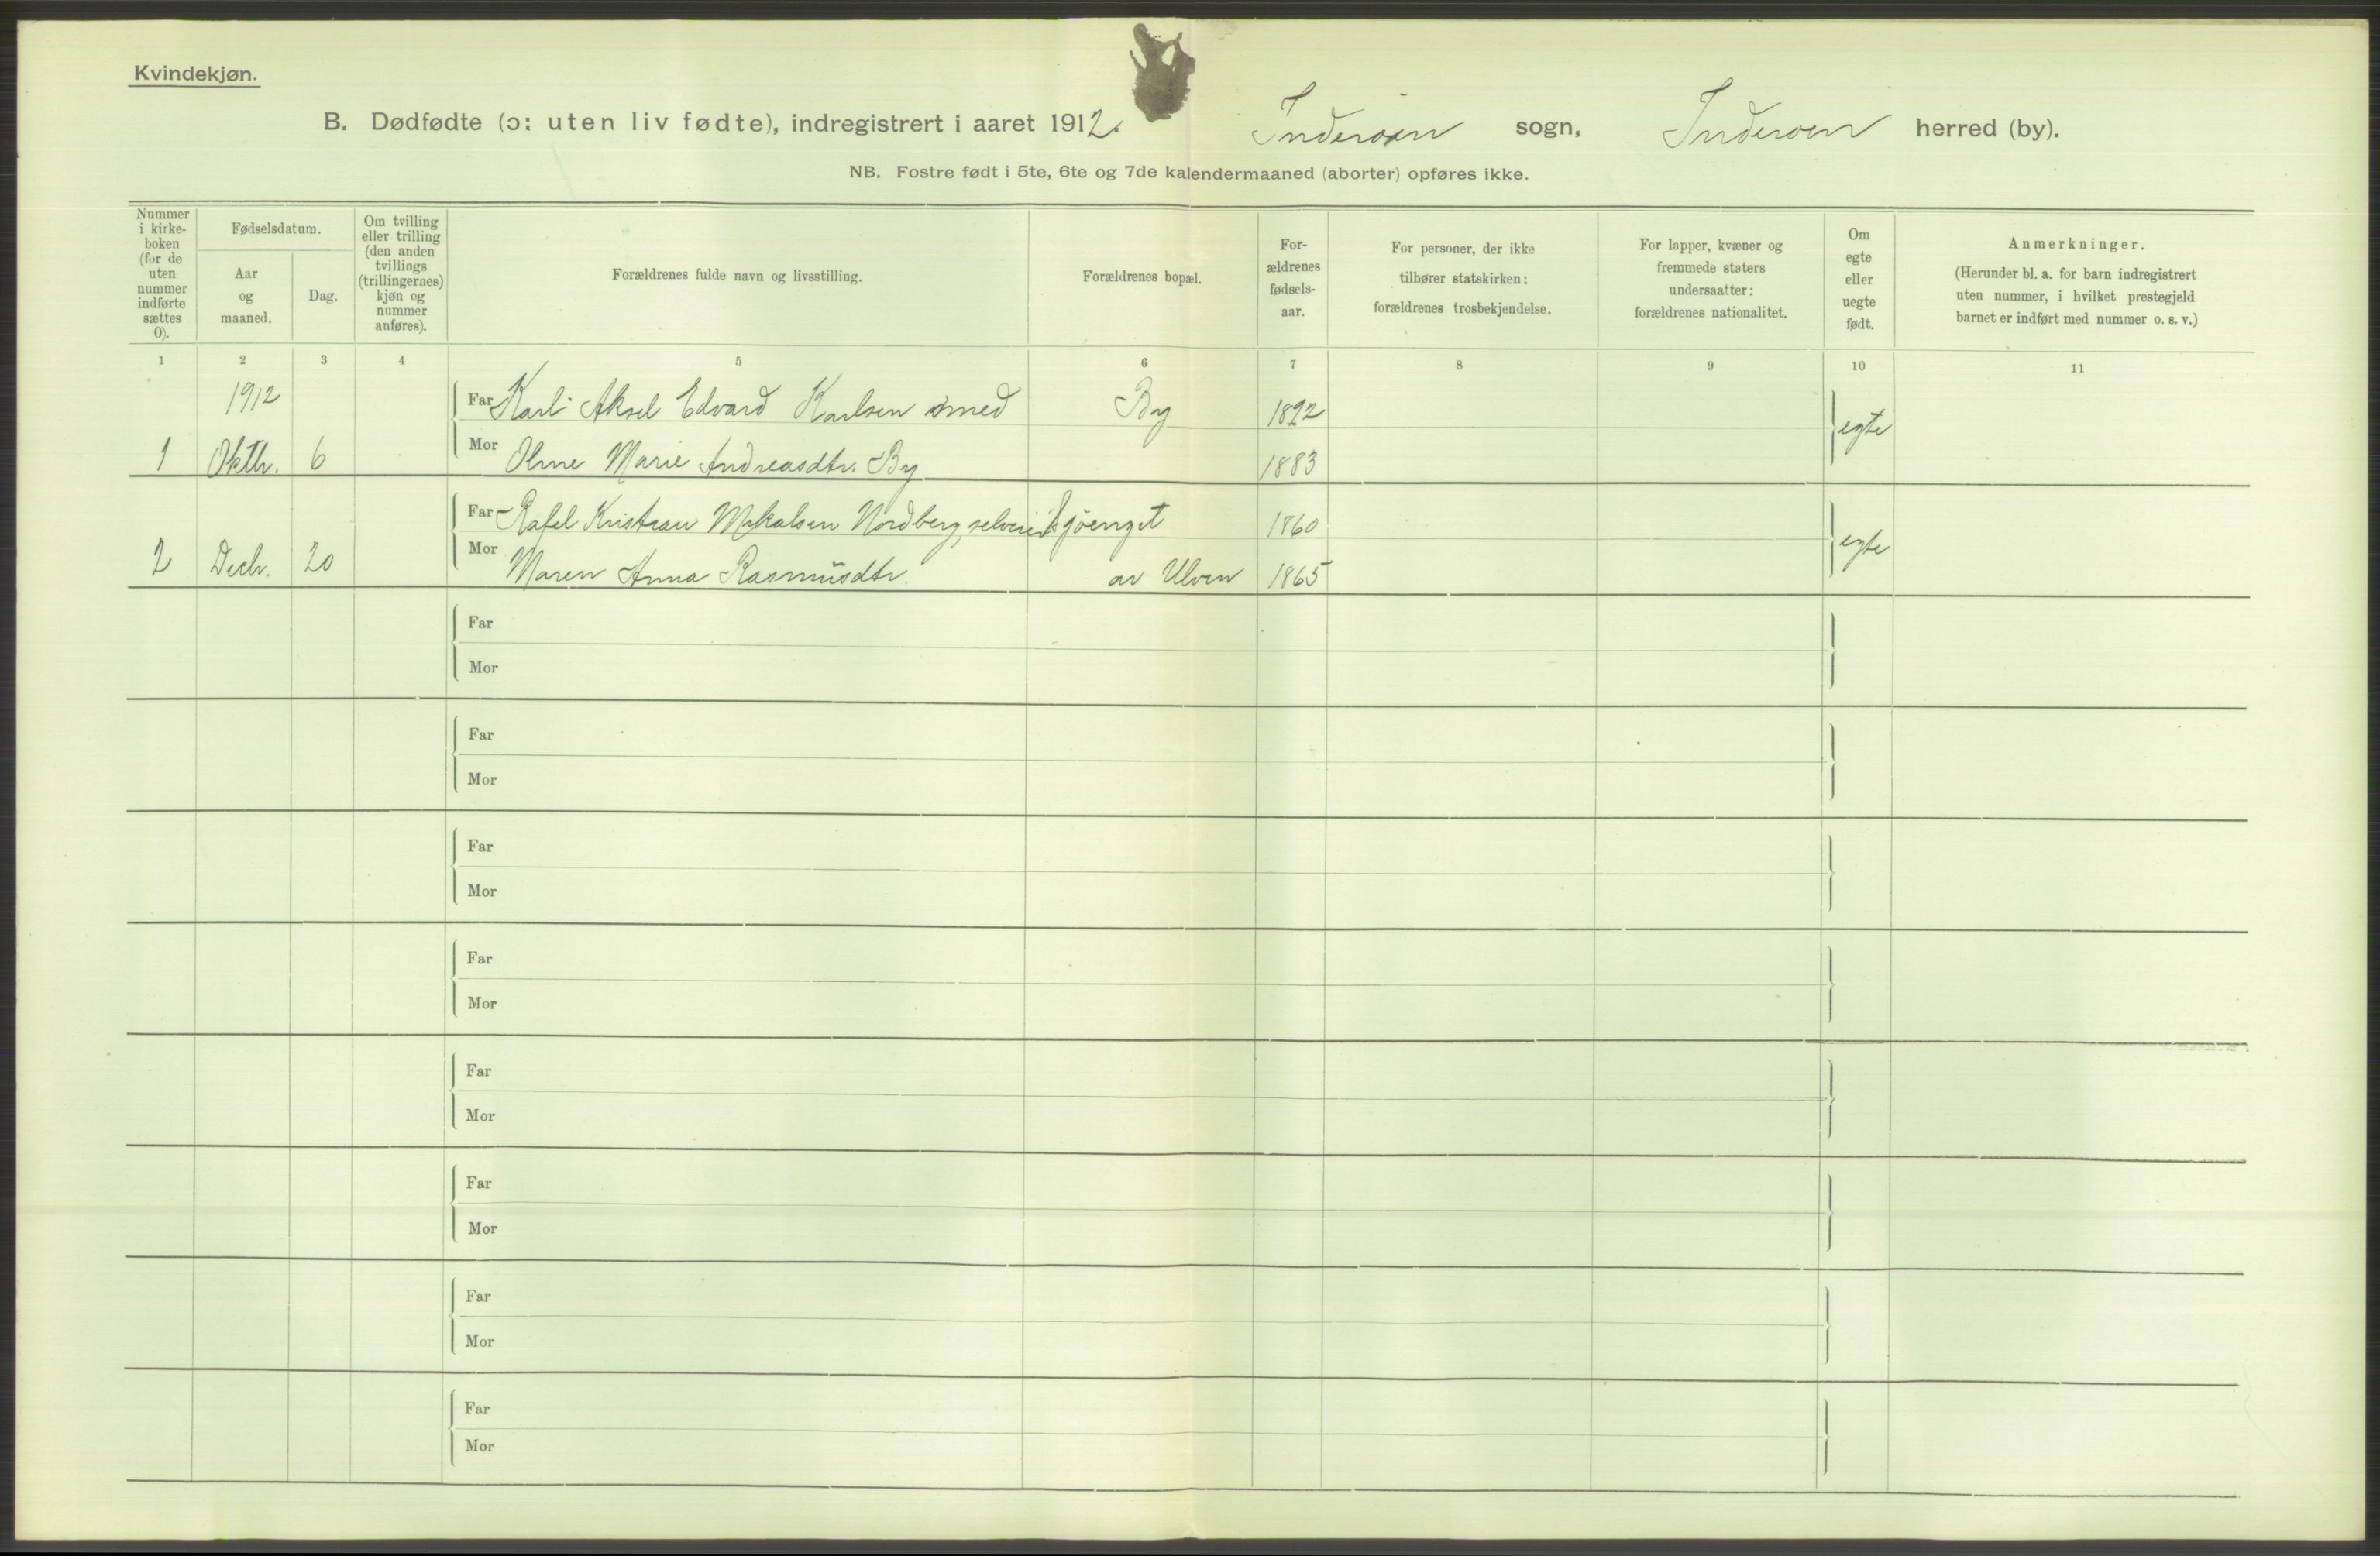 Kvindekjøn.
B. Dødfødte (ɔ: uten liv fødte), indregistrert i aaret 1912. Inderøen sogn, Inderøen herred (by).
NB. Fostre født i 5te, 6te og 7de kalendermaaned (aborter) opføres ikke.
Nummer
i kirke-
boken
(for de
uten
nummer
indførte
sættes
0).
Fødselsdatum.
Aar
og
maaned.
Dag.
Om tvilling
eller trilling
(den anden
tvillings
(trillingernes)
kjøn og
nummer
anføres).
Forældrenes fulde navn og livsstilling.
Forældrenes bopæl.
For-
ældrenes
fødsels-
aar.
For personer, der ikke
tilhører statskirken:
forældrenes trosbekjendelse.
For lapper, kvæner og
fremmede staters
undersaatter:
forældrenes nationalitet.
Om
egte
eller
uegte
født.
Anmerkninger.
(Herunder bl. a. for barn indregistrert
uten nummer, i hvilket prestegjeld
barnet er indført med nummer o. s. v.)
1 2 3 4 5 6 7 8 9 10 11
1912 Far Karl Aksel Edvard Karlsen smed By egte
1 Oktbr. 6 Mor Marie Andreasdtr. By 1883
Far Rafel Kristian Mikalsen Nordberg, 1860 egte
2 Decbr. 20 Mor Maren Anna Rasmusdtr. av Ulven 1865
Far
Mor
Far
Mor
Far
Mor
Far
Mor
Far
Mor
Far
Mor
Far
Mor
Far
Mor